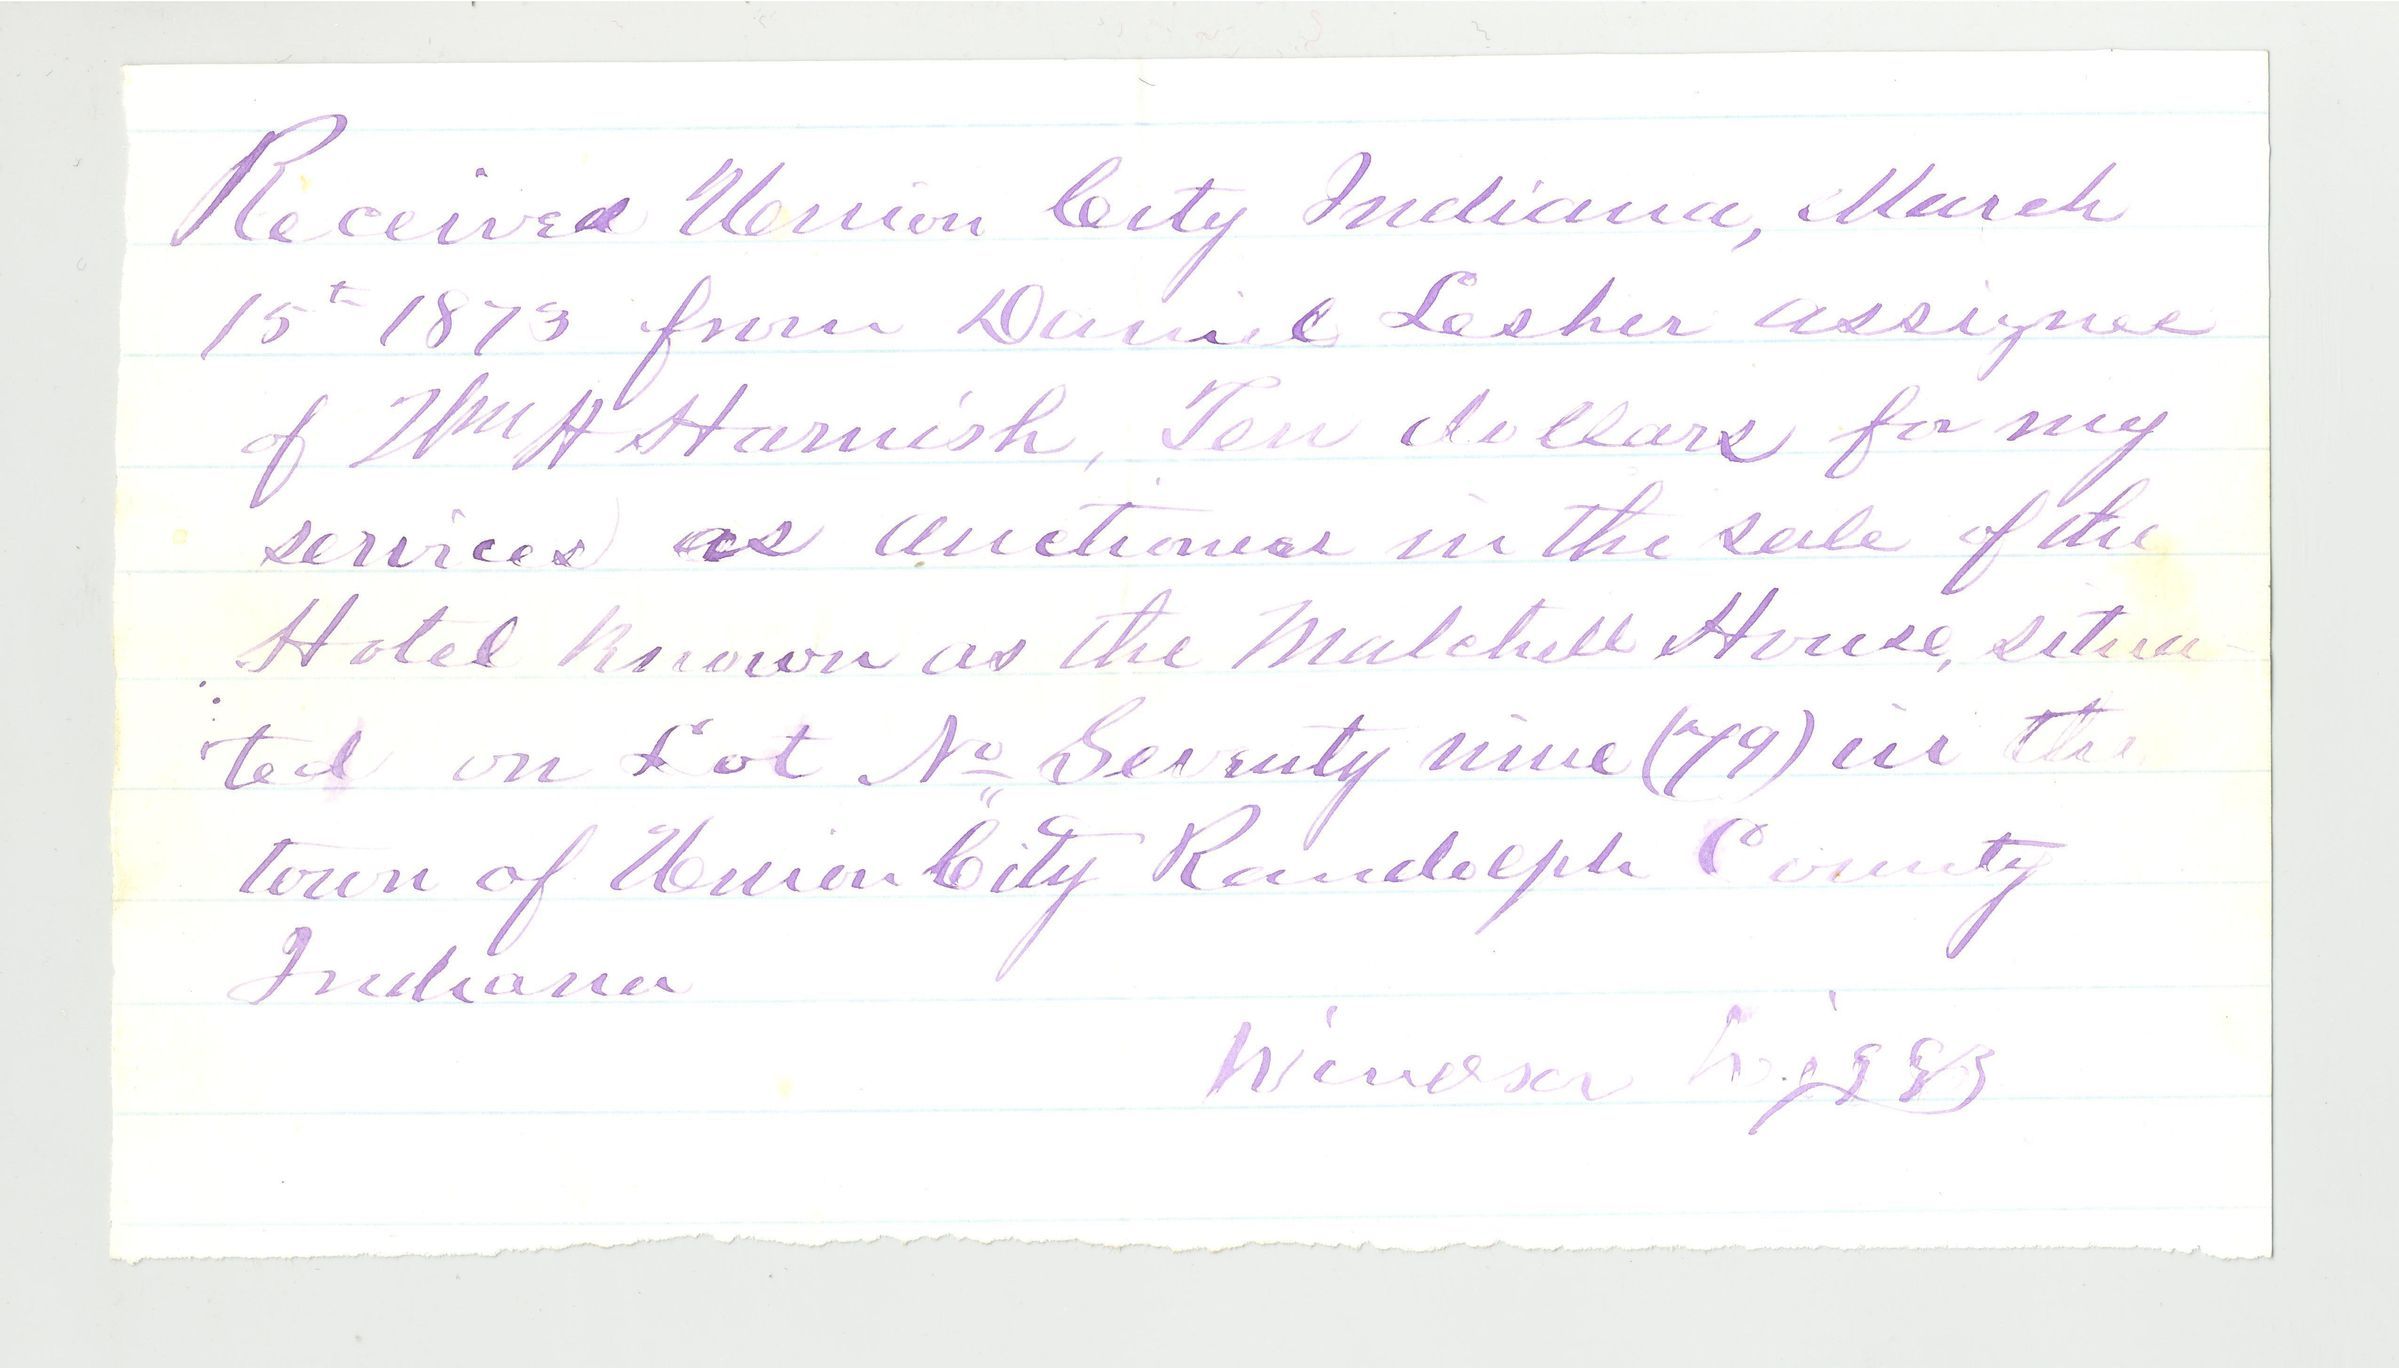 Received Union City Indiana, March
15th 1873 from Daniel Lesher assignee
of Wm H Harnish, Ten dollars for my
services as auctioneer in the sale of the
Hotel known as the Malchell House, situa-
ted on Lot No Seventy nine (79) in the
town of Union City Randolph County
Indiana
Windsor Wiggs